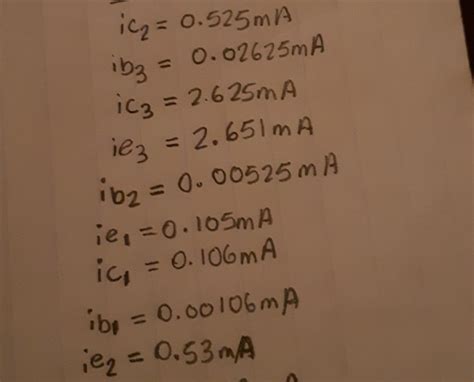 ic₂ = 0.525mA
ib₃ = 0.02625mA
ic₃ = 2.625mA
ie₃ = 2.651mA
ib₂ = 0.00525mA
ie₁ = 0.105mA
ic₁ = 0.106mA
ib₁ = 0.00106mA
ie₂ = 0.53mA